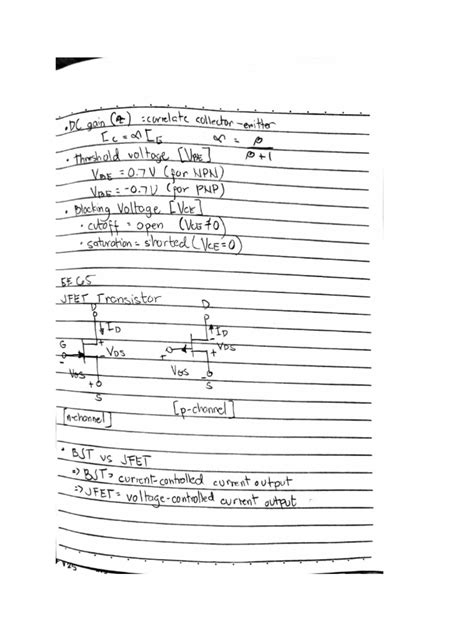 • DC gain (α) = correlate collector-emitter
IC = α IE α = β / β+1
• Threshold voltage [VBE]
VBE = 0.7V (for NPN)
VBE = -0.7V (for PNP)
• Blocking Voltage [VCE]
• cutoff = open (VCE ≠ 0)
• saturation = shorted (VCE = 0)
EE 65
JFET Transistor
D D
ID ID
G + - VDS
- VDS +
VGS VGS
+ S S
[n-channel] [p-channel]
• BJT vs JFET
=> BJT = current-controlled current output
=> JFET = voltage-controlled current output